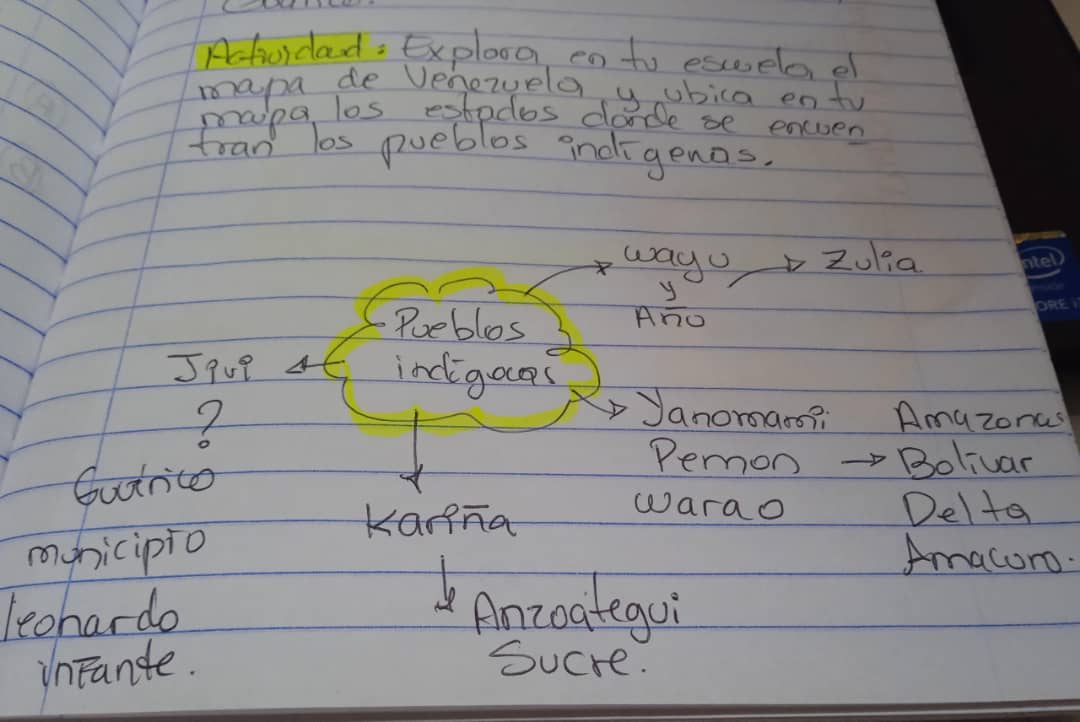 Actividad: Explora en tu escuela el
mapa de Venezuela y ubica en tu
mapa los estados donde se encuen
tran los pueblos indígenas.
wayu → Zulia
y
Año
Pueblos
indígenas
Jqui
?
Guárico
municipio
leonardo
infante.
Kariña
Anzoátegui
Sucre.
Yanomami Amazonas
Pemon → Bolivar
warao Delta
Amacuro.
intel
CORE i